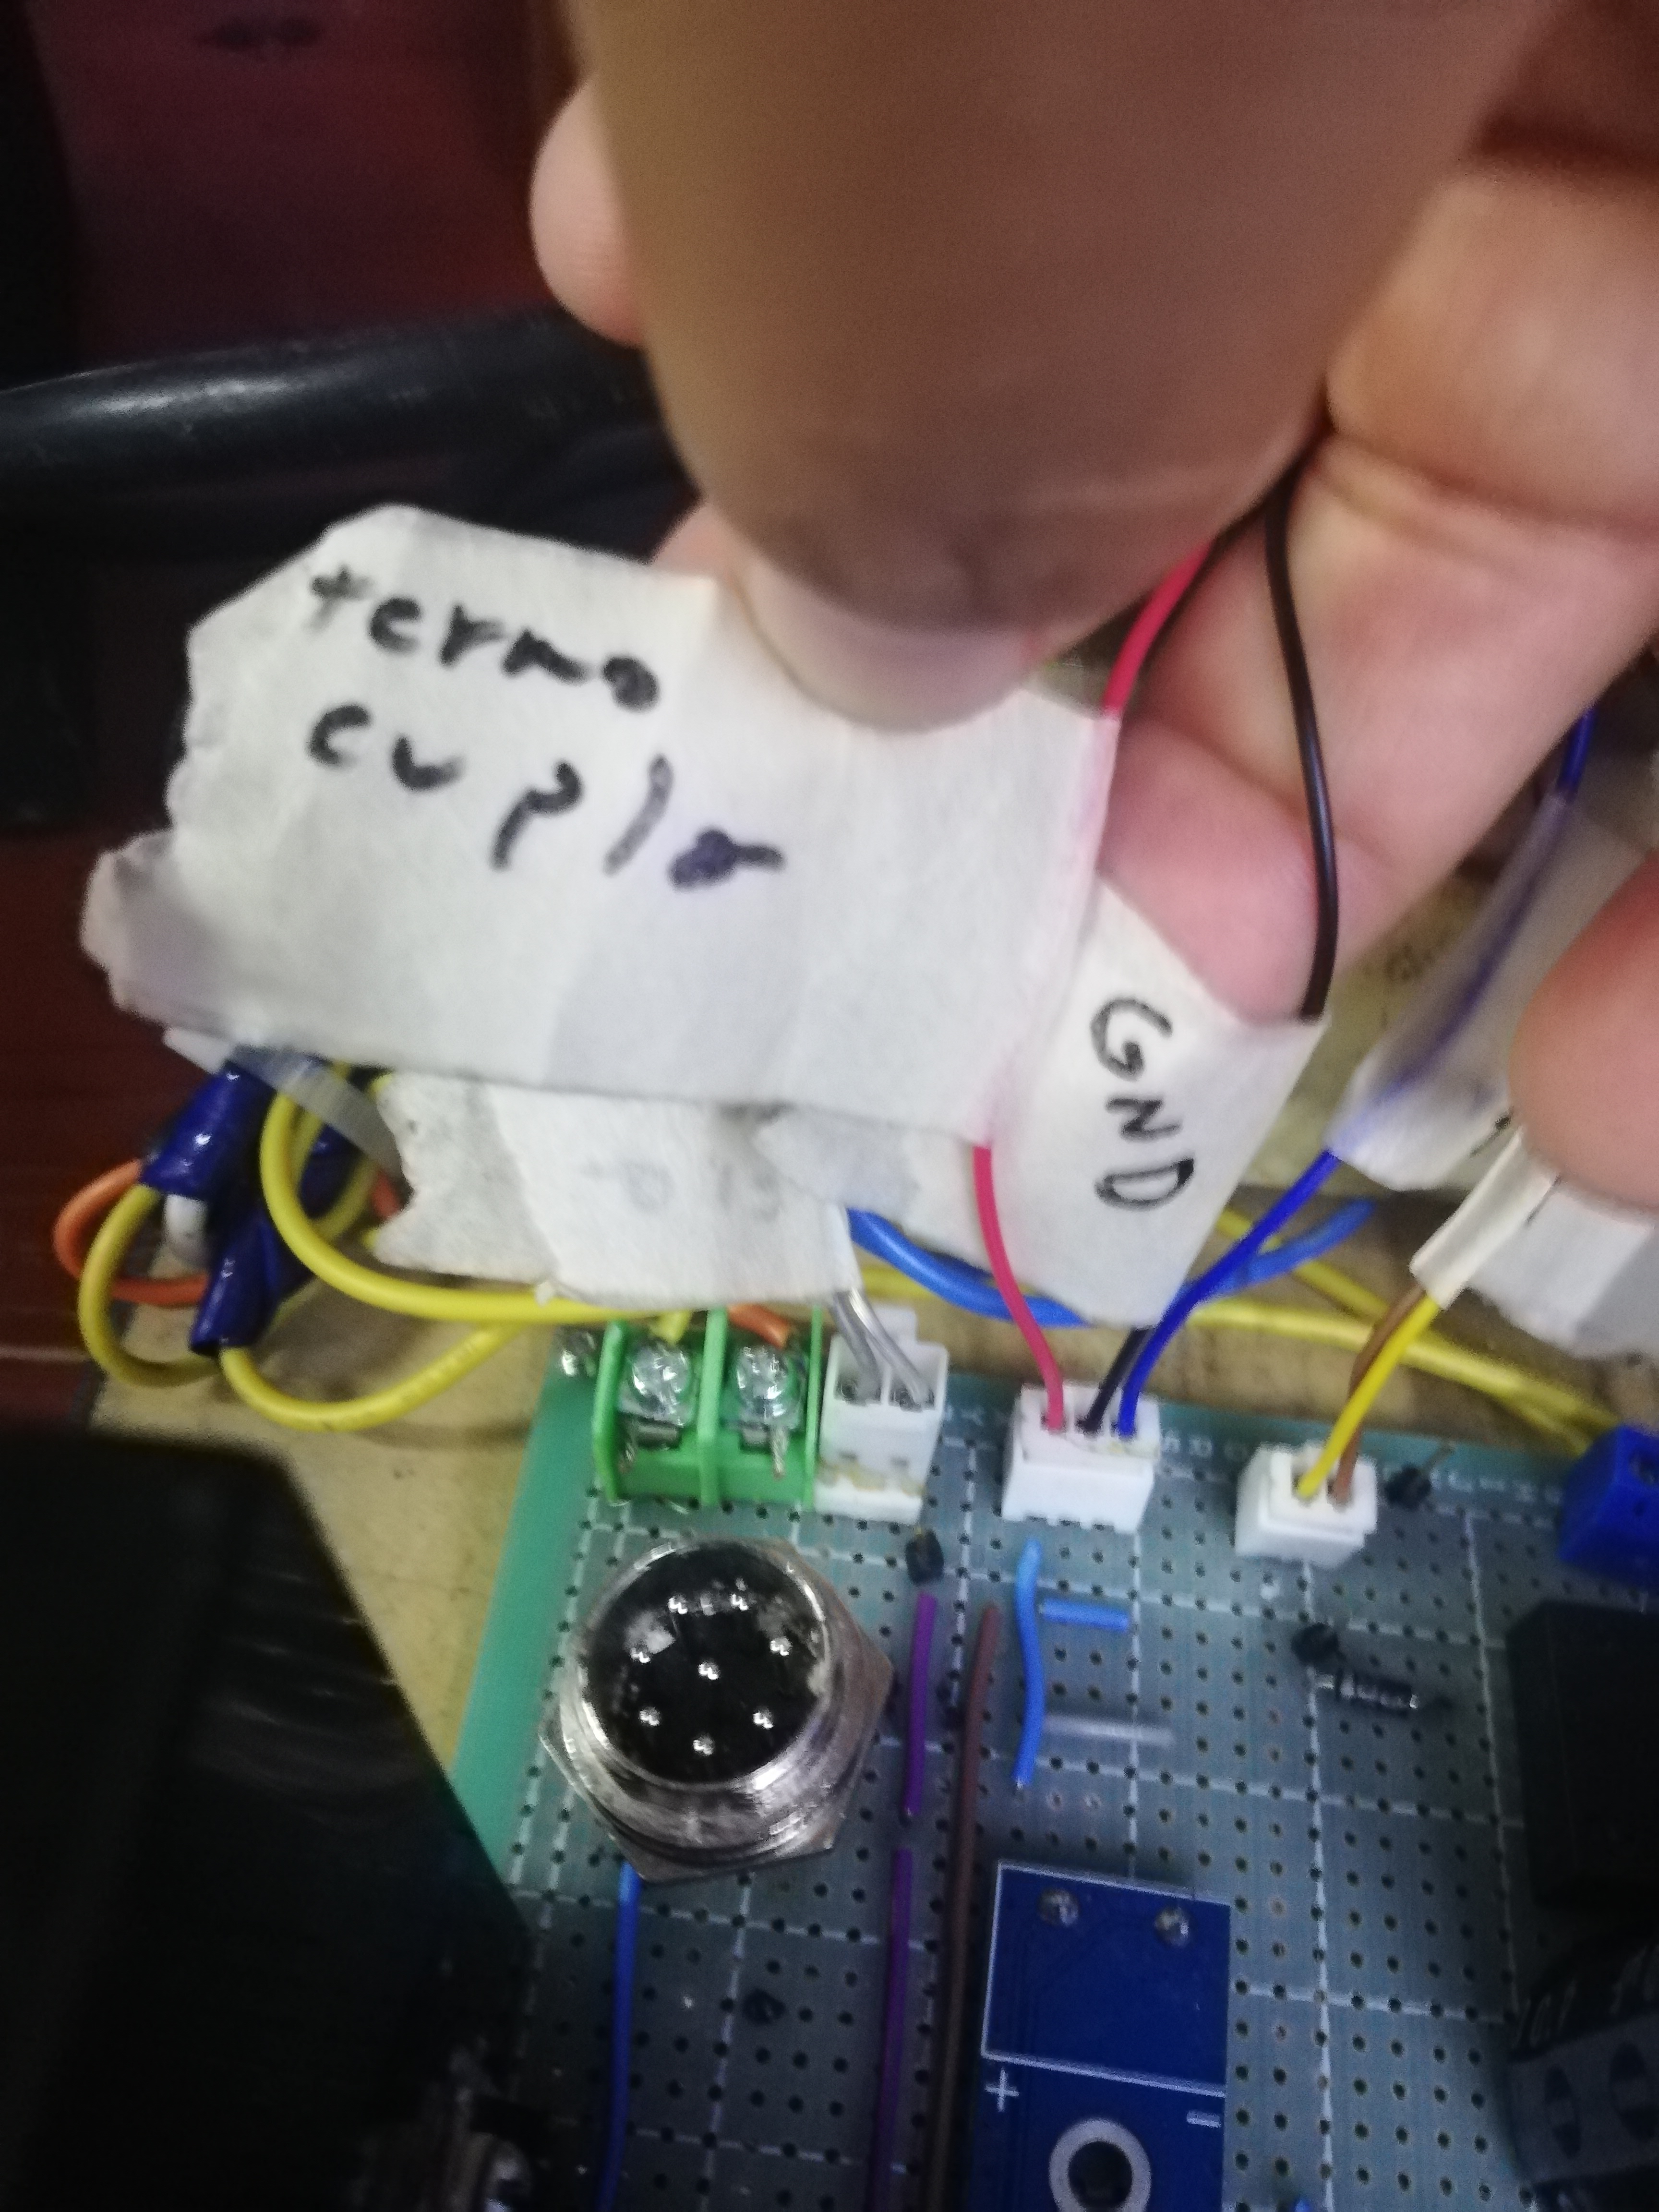 termo
cupla
GND
+
-